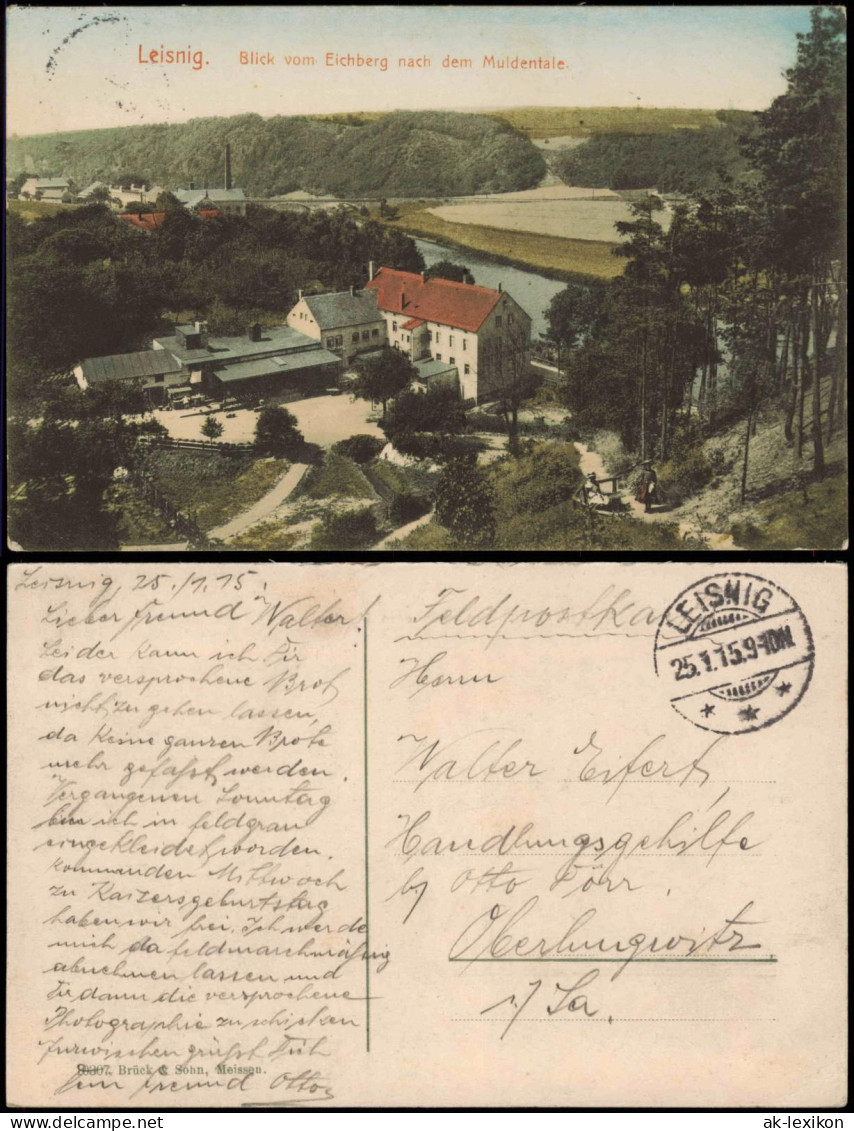 Leisnig. Blick vom Eichberg nach dem Muldentale.
Leisnig, 25./1.15.
Lieber Freund Walter!
Leider kann ich Dir
das versprochene Brot
nicht zu gehen lassen,
da keine ganzen Brote
mehr gefaßt werden.
Vergangenen Sonntag
bin ich in feldgrau
eingekleidet worden.
Kommanden Mittwoch
zu Kaisersgeburtstag
haben wir frei. Ich werde
mich da feldmarschmäßig
abnehmen lassen und
Dir dann die versprochene
Photographie zu schicken
Inzwischen grüßt Dich
Dein Freund Otto
Brück & Sohn, Meissen.
Feldpostka
LEISNIG
25.1.15.9-10N.
Herrn
Walter Eifert,
Handlungsgehilfe
b/ Otto Dörr.
Oberlungwitz
i/ Sa.
delcampe.net
ak-lexikon